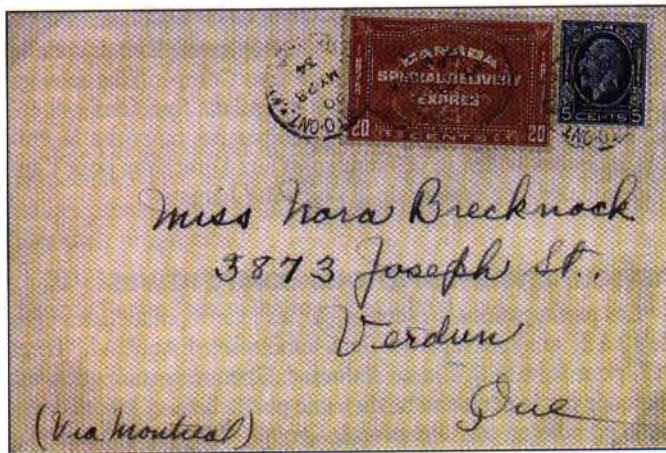 CANADA
SPECIAL DELIVERY
EXPRES
20 CENTS 20
CANADA
5 CENTS 5
MY 28
34
TO. ONT.
TO. ONT.
Miss Nora Brecknock
3873 Joseph St.,
Verdun
Que
(Via Montreal)